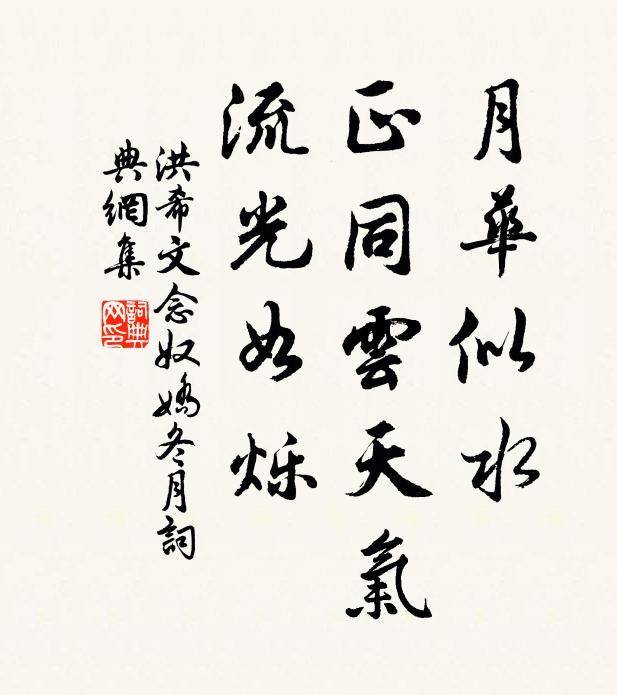 月華似水
正同雲天氣
流光如烁
洪希文念奴嬌冬月詞
典網集
詞典网印